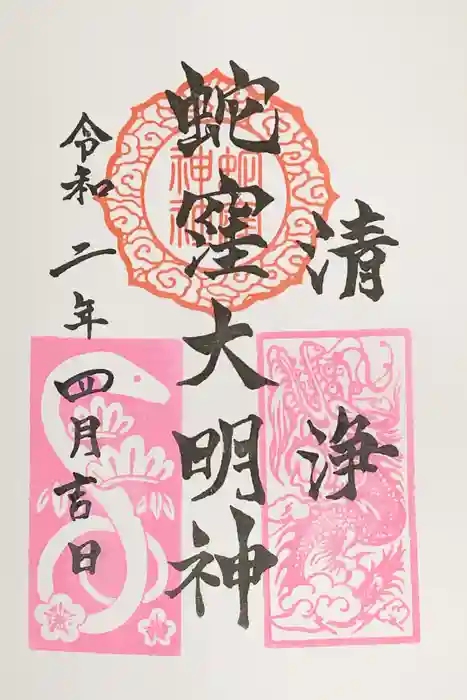 清浄
蛇窪大明神
令和二年四月吉日
蛇窪神社